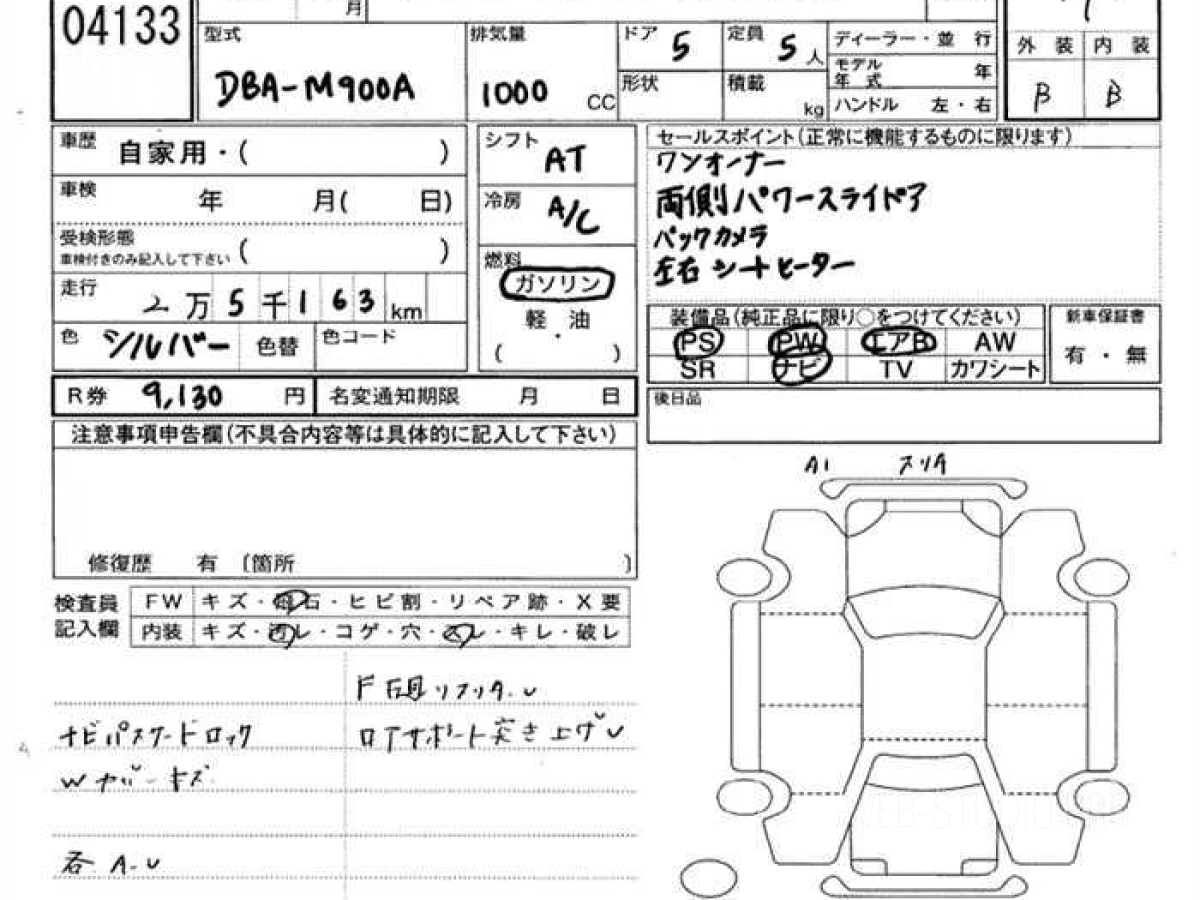 04133
月
型式
DBA-M900A
排気量
1000 CC
ドア 5
定員 5 人
形状
積載 kg
ディーラー・並 行
モデル年 式 年
ハンドル 左・右
外 装 内 装
B B
車歴 自家用・( )
車検 年 月( 日)
受検形態 ( )
車検付きのみ記入して下さい
走行 2万5千163km
色 シルバー 色替 色コード
シフト AT
冷房 A/C
燃料
ガソリン
軽・油
( )
セールスポイント(正常に機能するものに限ります)
ワンオーナー
両側パワースライドア
バックカメラ
左右シートヒーター
装備品(純正品に限り○をつけてください)
PS PW エアB AW
SR ナビ TV カワシート
新車保証書
有・無
R券 9,130 円 名変通知期限 月 日
後日品
注意事項申告欄(不具合内容等は具体的に記入して下さい)
修復歴 有 〔箇所 〕
検査員記入欄
FW キズ・飛石・ヒビ割・リペア跡・X要
内装 キズ・汚レ・コゲ・穴・スレ・キレ・破レ
A1 スリキ
ナビパスワードロック
Wカバーキズ
各 A.U
ロアサポート突き上げU